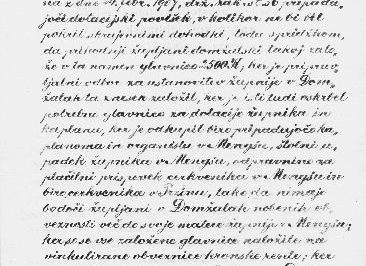 na z dne 24. febr. 1907, drž. zak. št. 56, pripada-
joči dotacijski povišek, v kolikor ne bi bil
pokrit s krajevnimi dohodki, toda s pridržkom,
da prihodnji župljani domžalski takoj zalo-
že v ta namen glavnico 2500 K, ker je priprav-
ljalni odbor za ustanovitev župnije v Dom-
žalah ta znesek založil, ker je isti tudi oskrbel
potrebno glavnico za dotacijo župnika in
kaplana, ker je odkupil biro pripadajočo ka-
planoma in organistu v Mengšu, štolni u-
padek župnika v Mengšu, odpravnino za
plačilni prispevek cerkvenika v Mengšu in
biro cerkvenika v Trzinu, tako da nimajo
bodoči župljani v Domžalah nobenih ob-
veznosti več do svoje matere župnije v Mengšu;
ker so se vse založene glavnice naložile na
vinkulirane obveznice kronske rente; ker